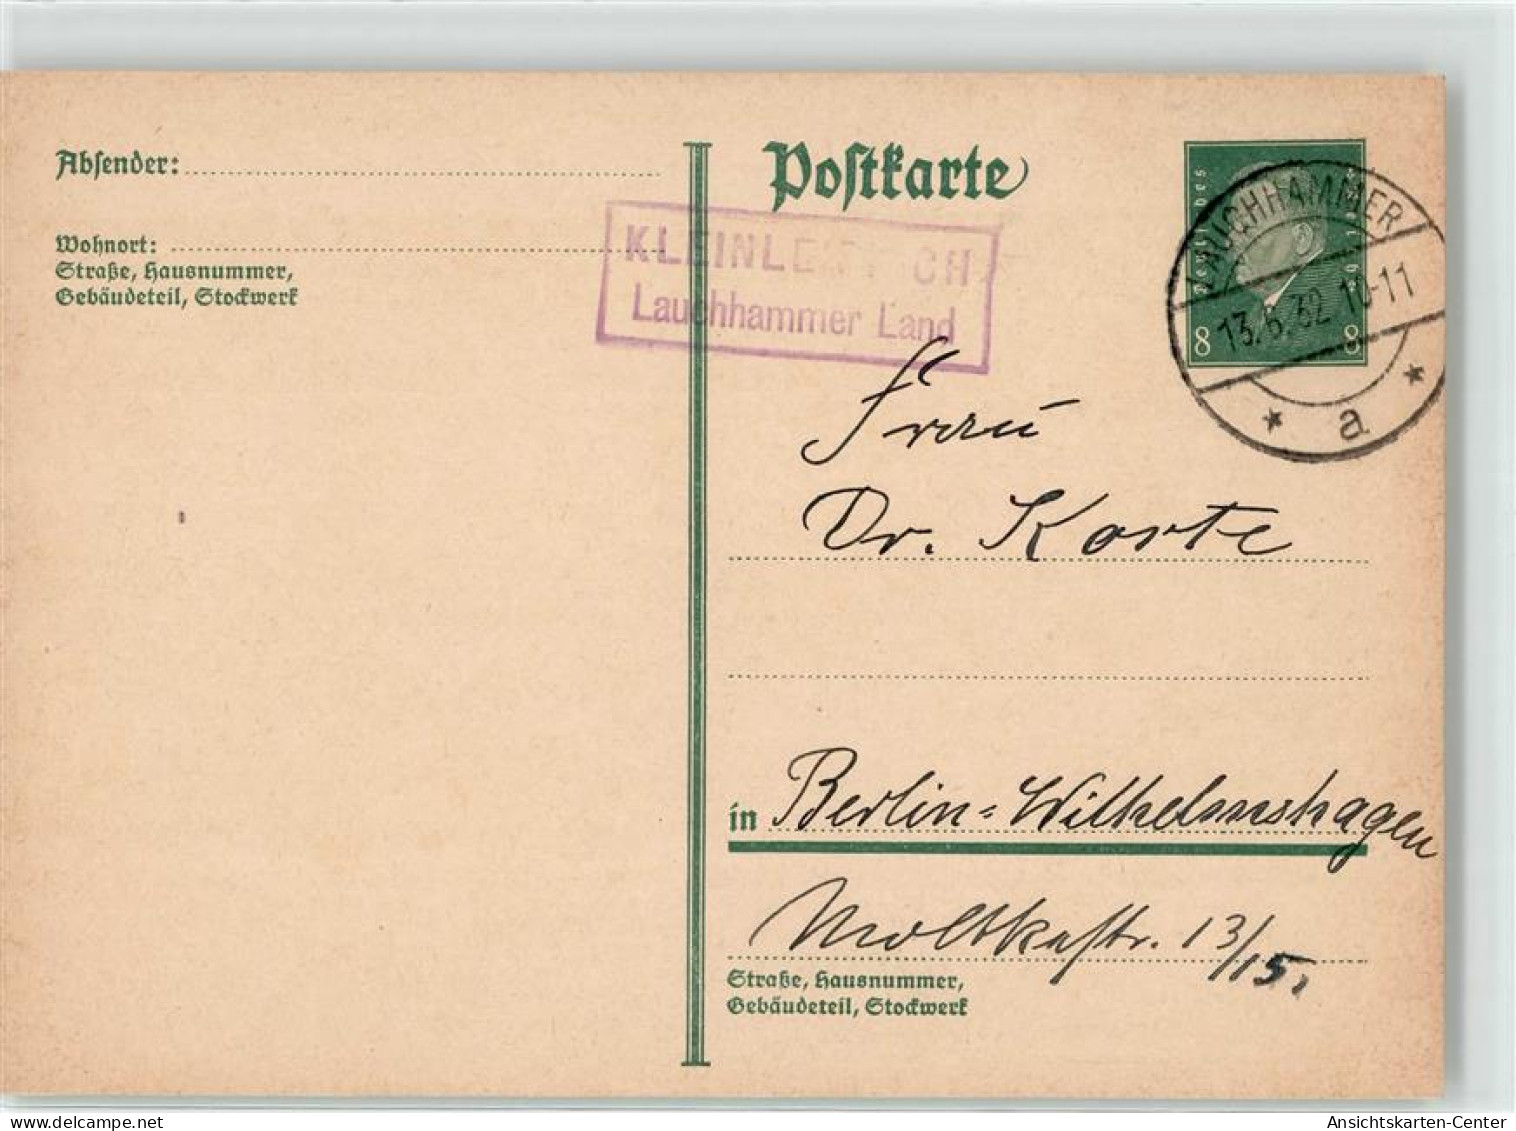 Absender:
Wohnort:
Straße, Hausnummer,
Gebäudeteil, Stockwerk
Postkarte
Lauchhammer Land
8 8
LAUCHHAMMER
13.6.32 10-11
* a *
Frau
Dr. Korte
in Berlin=Wilhelmshagen
Moltkestr. 13/15.
Straße, Hausnummer,
Gebäudeteil, Stockwerk
Ansichtskarten-Center